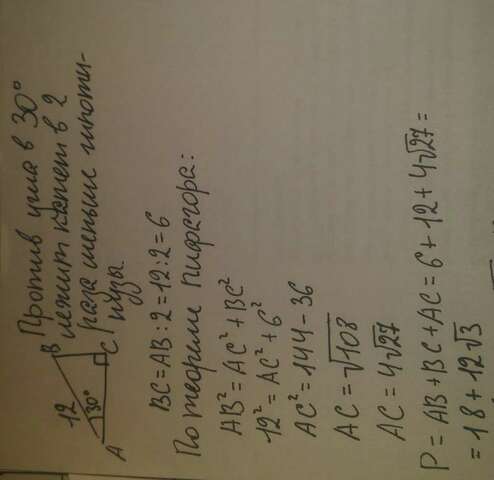 12
B
30°
A
C
Против угла в 30°
лежит катет в 2
раза меньше гипоти-
нузы.
BC = AB : 2 = 12 : 2 = 6
По теореме пифагора:
AB² = AC² + BC²
12² = AC² + 6²
AC² = 144 - 36
AC = √108
AC = 4√27
P = AB + BC + AC = 6 + 12 + 4√27 =
= 18 + 12√3